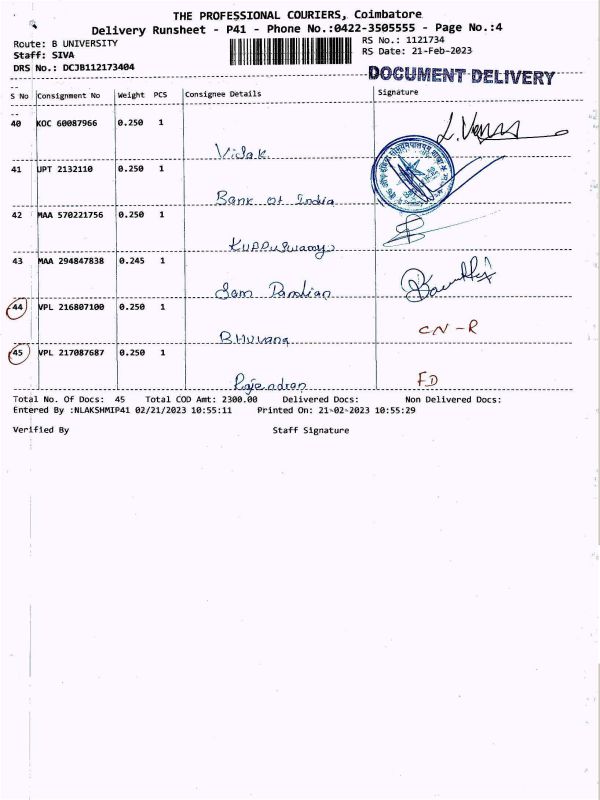 THE PROFESSIONAL COURIERS, Coimbatore
Delivery Runsheet - P41 - Phone No.:0422-3505555 - Page No.:4
Route: B UNIVERSITY
RS No.: 1121734
Staff: SIVA
RS Date: 21-Feb-2023
DRS No.: DCJB112173404
DOCUMENT DELIVERY
S No Consignment No Weight PCS Consignee Details Signature
40 KOC 60087966 0.250 1
Vidak
41 UPT 2132110 0.250 1
Bank of India
42 MAA 570221756 0.250 1
Kuppuswamy
43 MAA 294847838 0.245 1
Sam Pandian
44 VPL 216807100 0.250 1
CN-R
Bhuvana
45 VPL 217087687 0.250 1
FD
Rajendran
Total No. Of Docs: 45 Total COD Amt: 2300.00 Delivered Docs: Non Delivered Docs:
Entered By :NLAKSHMIP41 02/21/2023 10:55:11 Printed On: 21-02-2023 10:55:29
Verified By Staff Signature